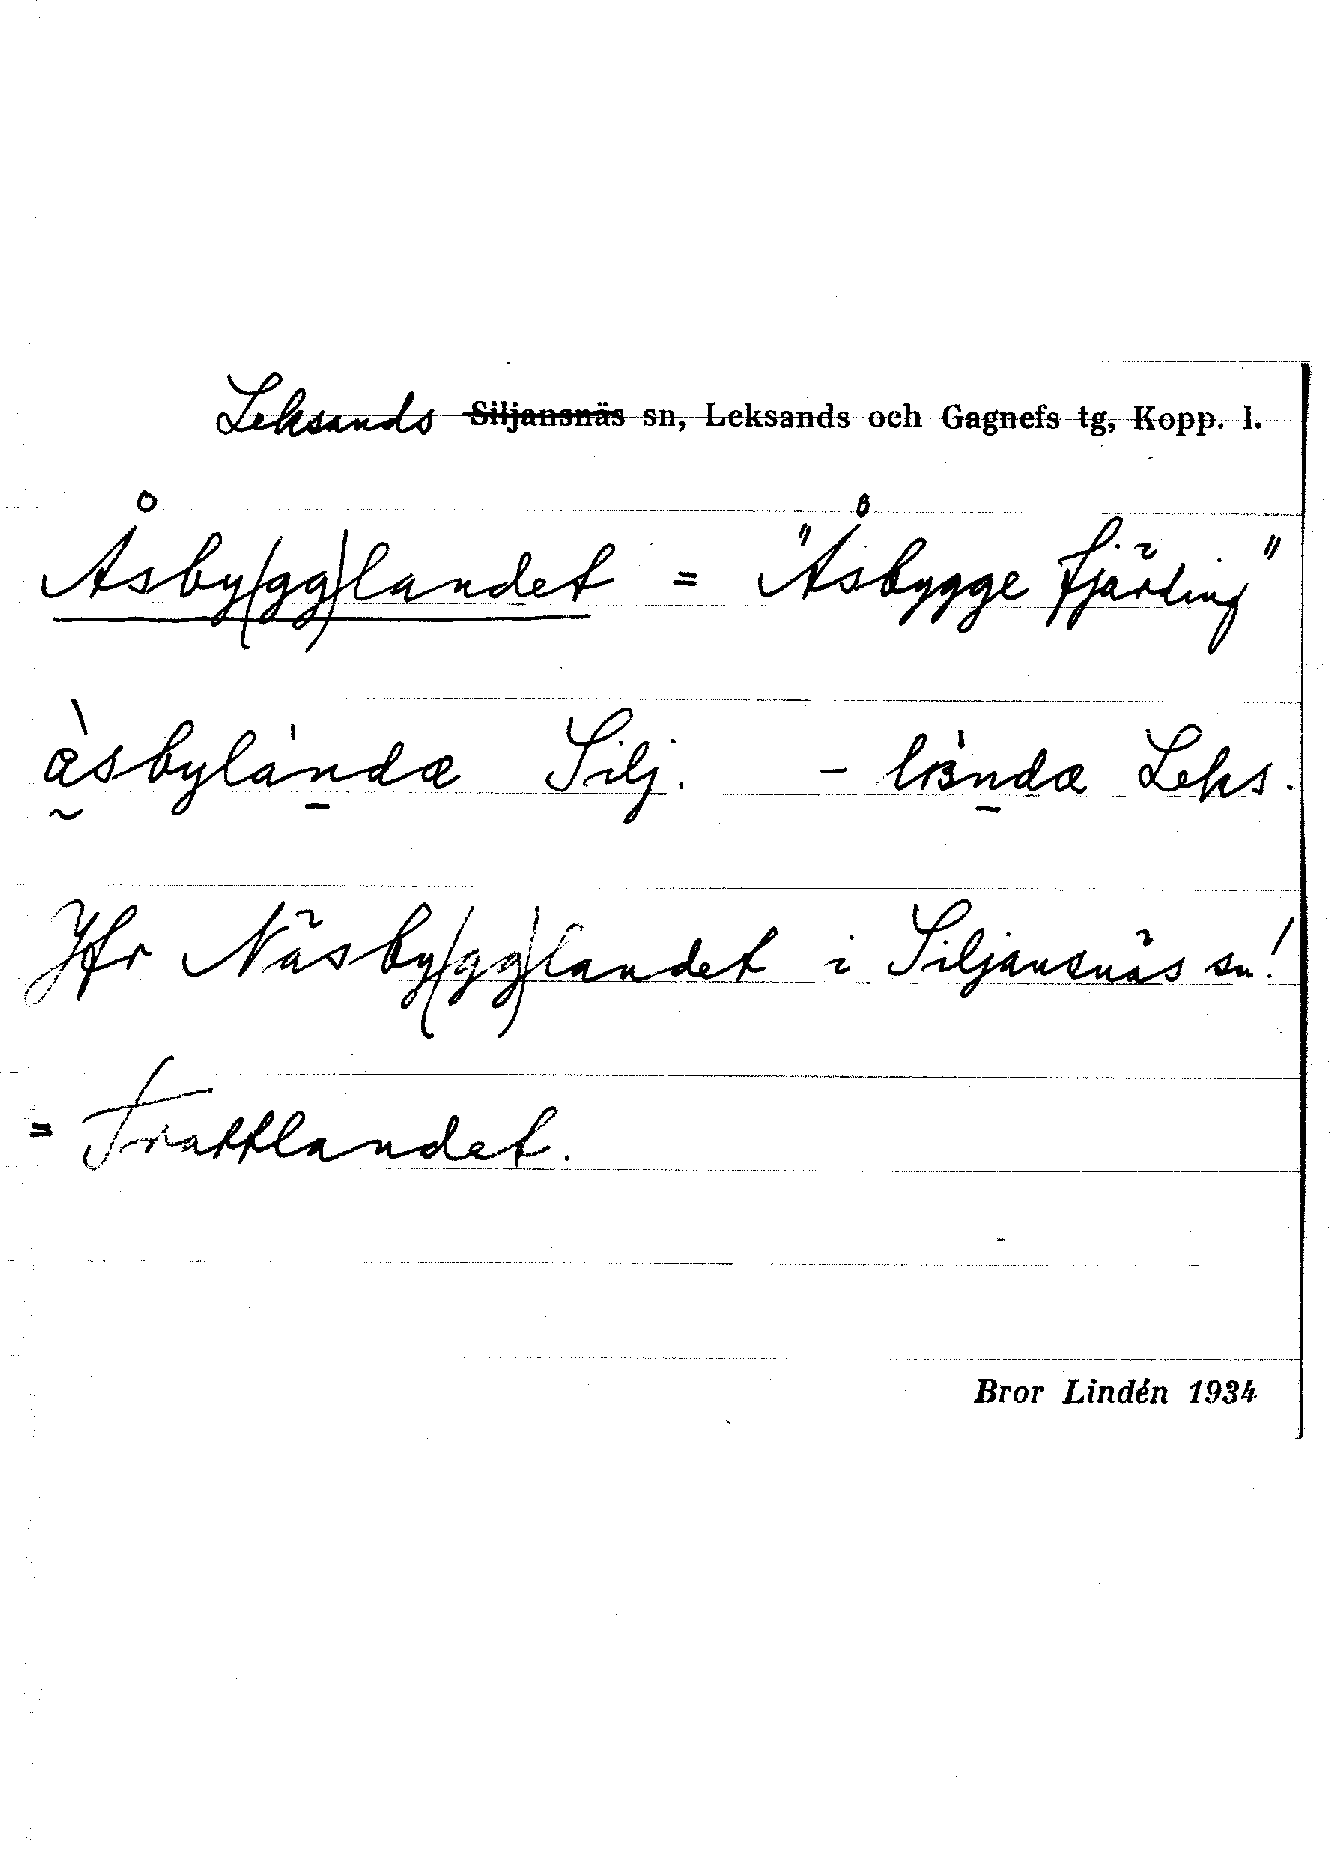 Leksands ~~Siljansnäs~~ sn, Leksands och Gagnefs tg, Kopp. l.
Åsby(gg)landet = "Åsbygge fjärding"
Silj. – Leks.
Jfr Näsby(gg)landet i Siljansnäs sn!
= Trattlandet.
Bror Lindén 1934